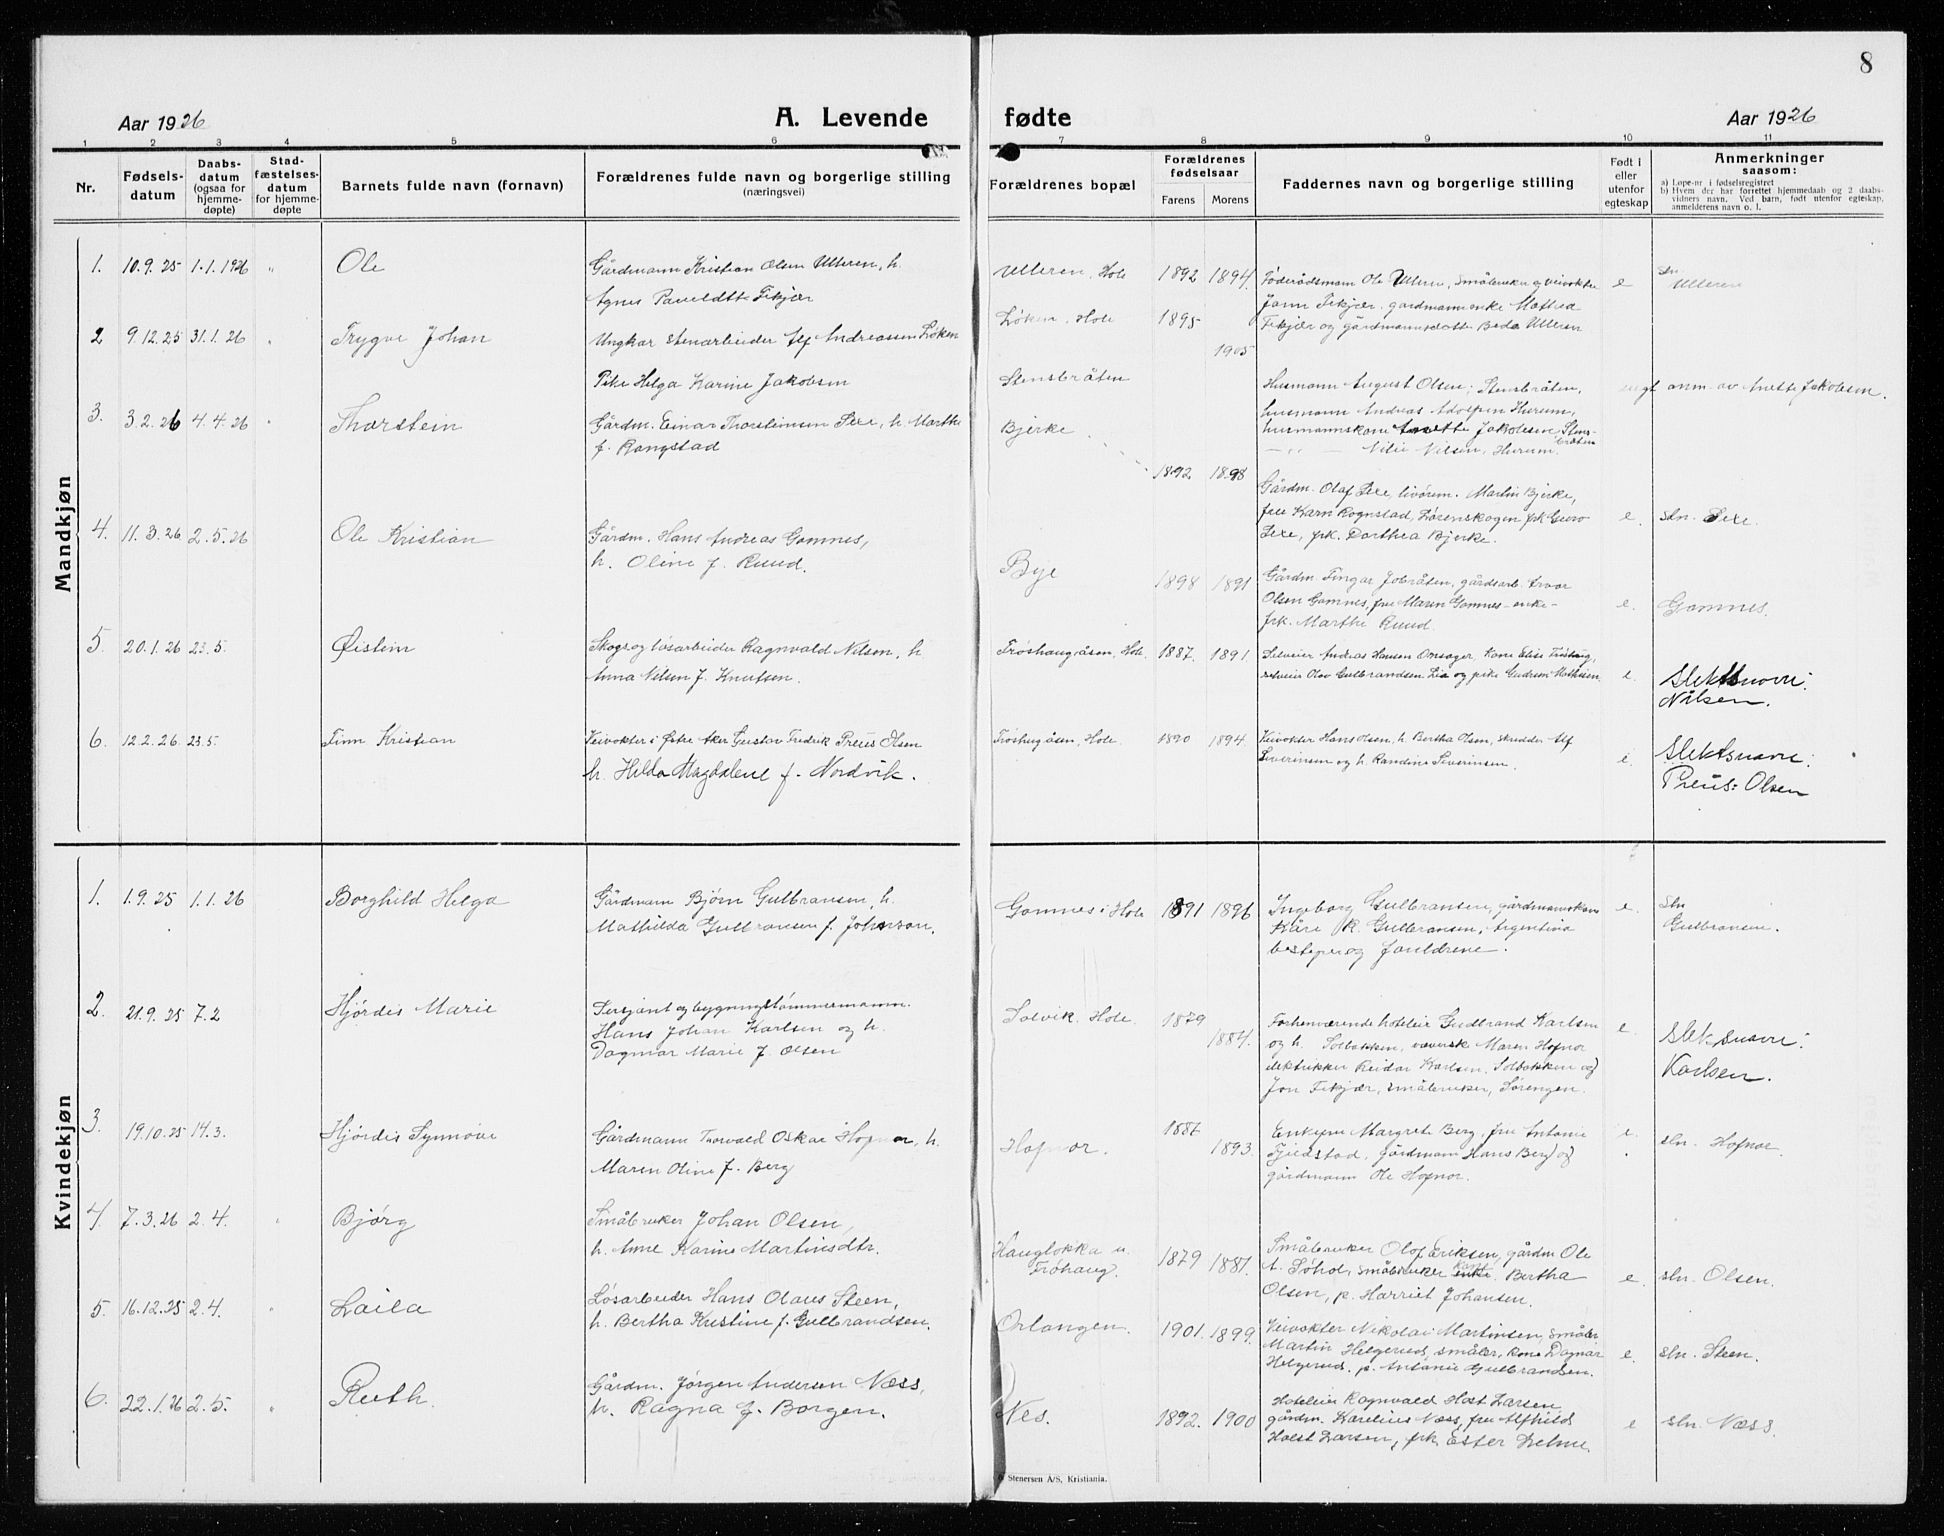 8
Aar 1926
A. Levende fødte
Aar 1926
1 2 3 4 5 6 7 8 9 10 11
Nr.
Fødsels-
datum
Daabs-
datum
(ogsaa for
hjemme-
døpte)
Stad-
fæstelses-
datum
for hjemme-
døpte
Barnets fulde navn (fornavn)
Forældrenes fulde navn og borgerlige stilling
(næringsvei)
Forældrenes bopæl
Forældrenes
fødselsaar
Farens Morens
Faddernes navn og borgerlige stilling
Født i
eller
utenfor
egteskap
Anmerkninger
saasom:
a) Løpe-nr i fødselsregistret
b) Hvem der har forrettet hjemmedaab og 2 daabs-
vidners navn. Ved barn, født utenfor egteskap,
anmelderens navn o. l.
Mandkjøn
1. 10.9.25 1.1.1926 " Ole
Gårdmann Kristian Olsen Ulleren, h.
Agnes Fekjær
Ulleren, Hole 1892 1894
Føderådsmann Ole Ulleren, Småbruker og veivokter
Fekjær, gårdmannsenke Mathea
Fekjær og gårdmannsdatter Ulleren
e sln Ulleren
2 9.12.25 31.1.26 " Trygve Johan
Ungkar stenarbeider Alf Andreassen Løken
Pike Helga Karine Jakobsen
Løken, Hole 1895
1905
Stensbråten
Husmann August Olsen, Stensbråten,
husmann Andreas Adolfsen Hurum,
husmannskone Anette Jakobsen, Stens-
bråten
— " — Nilsen, Hurum.
uegt anm. av Anette Jakobsen.
3. 3.2.26 4.4.26 " Thorstein
Gårdm. Einar Thorsteinsen Sexe, h. Marthe
f. Rongstad
Bjerke
1892 1898
Gårdm. Olaf Sexe, Martin Bjerke,
fru Karn Rognstad, Lørenskogen frk Guro
Sexe, frk. Dorthea Bjerke.
e. sln. Sexe.
4. 11.3.26 2.5.26 Ole Kristian
Gårdm. Hans Andreas Gomnes,
h. Oline f. Ruud.
Bye 1898 1891
Gårdm. Fingar Jobråten, gårdsarb.
Olsen Gomnes, fru Maren Gomnes - enke -
frk. Marthe Ruud.
e. Gomnes.
5. 20.1.26 23.5. Øistein
Skogs og løsarbeider Ragnvald Nilsen, h
Anna Nilsen f. Knutsen.
Frøshaugåsen, Hole. 1887. 1891
Selveier Andreas Hansen Onsager, Kone Elise Frøshaug,
selveier Olav Gulbrandsen Lia og pike Gudrun Mathisen.
e. Slektsnavn:
Nilsen.
6. 12.2.26. 23.5. Finn Kristian
Veivokter i Østre Aker Gustav Fredrik Preus Olsen
h. Hilda Magdalene f. Nordvik.
Frøshugåsen, Hole. 1890 1894.
Veivokter Hans Olsen, h. Bertha Olsen, skredder Alf
Severinsen og h. Randine Severinsen.
e. Slektsnavn:
Preus: Olsen
Kvindekjøn
1. 1.9.25 1.1.26 Borghild Helga
Gårdmann Bjørn Gulbransen, h.
Mathilda Gulbransen f. Johnson.
Gomnes i Hole 1891 1896
Ingeborg Gulbransen, gårdmannskone
Kåre K. Gulbransen, Argentina
og foreldrene.
e. sln
Gulbransen.
2. 21.9.25 7.2 Hjørdis Marie
Sersjant og bygningstømmermann
Hans Johan Karlsen og h.
Dagmar Marie f. Olsen
Solvik. Hole. 1879
1884.
Forhenværende hoteleier Gudbrand Karlsen
og h. Solbakken, væverske Maren Hofnor
elektriker Reidar Karlsen, Solbakken og
Jon Fekjær, småbruker, Sørengen.
e. Slektsnavn:
Karlsen.
3. 19.10.25 14.3. Hjørdis Synnøve
Gårdmann Thorvald Oskar Hofnor, h.
Maren Oline f. Berg
Hofnor. 1887
1893.
Enkefru Margrete Berg, fru Antonie
Fjeldstad, gårdmann Hans Berg og
gårdmann Ole Hofnor.
e. sln. Hofnor.
4. 7.3.26 2.4. " Bjørg
Småbruker Johan Olsen,
h. Anne Karine Martinsdtr.
Hauglokka u.
Frøhaug. 1879 1881.
Småbruker Olof Eriksen, gårdm Ole
A. Søhol, småbruker kone Bertha
Olsen, p. Harriet Johansen.
e. sln. Olsen.
5. 16.12.25 2.4. " Laila
Løsarbeider Hans Olaus Steen,
h. Bertha Kristine f. Gulbrandsen.
Orlangen. 1901. 1899.
Veivokter Nikolai Martinsen, småbr
Martin Helgerud, småbr, kone Dagmar
Helgerud, p. Antonie Gulbrandsen.
e. sln. Steen.
6. 22.1.26 2.5. " Ruth.
Gårdm. Jørgen Andersen Næss,
h. Ragna f. Borgen.
Nes. 1892. 1900
Hoteleier Ragnvald Holst Larsen,
gårdm. Karelius Næss, fru Alfhild
Holst Larsen, frk. Ester
e sln. Næss.
Stenersen A/S, Kristiania.